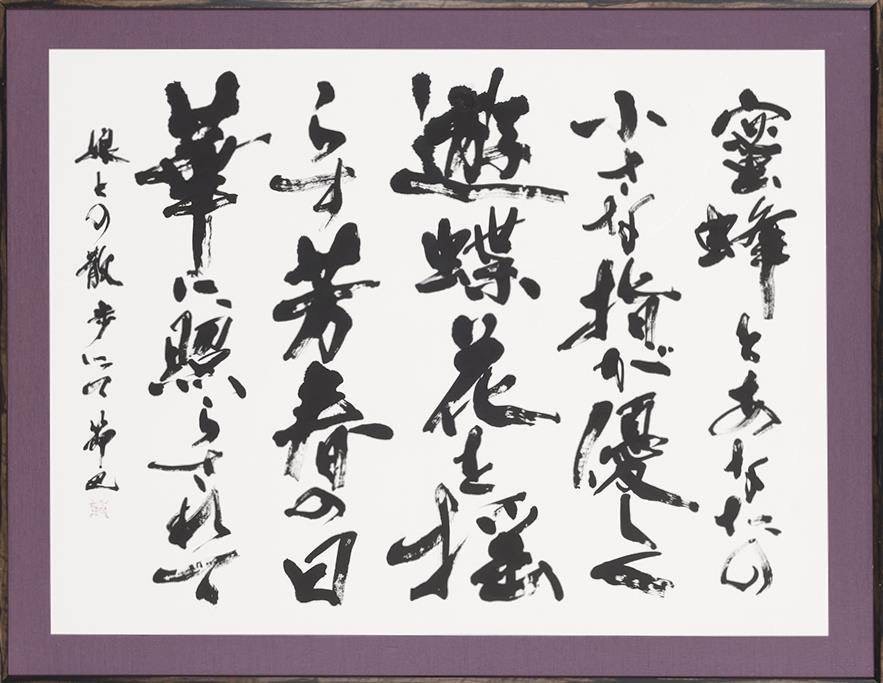 蜜蜂とあなたの
小さな指が優しく
遊蝶花を揺
らす芳春の日
華に照らされて
娘との散歩にて